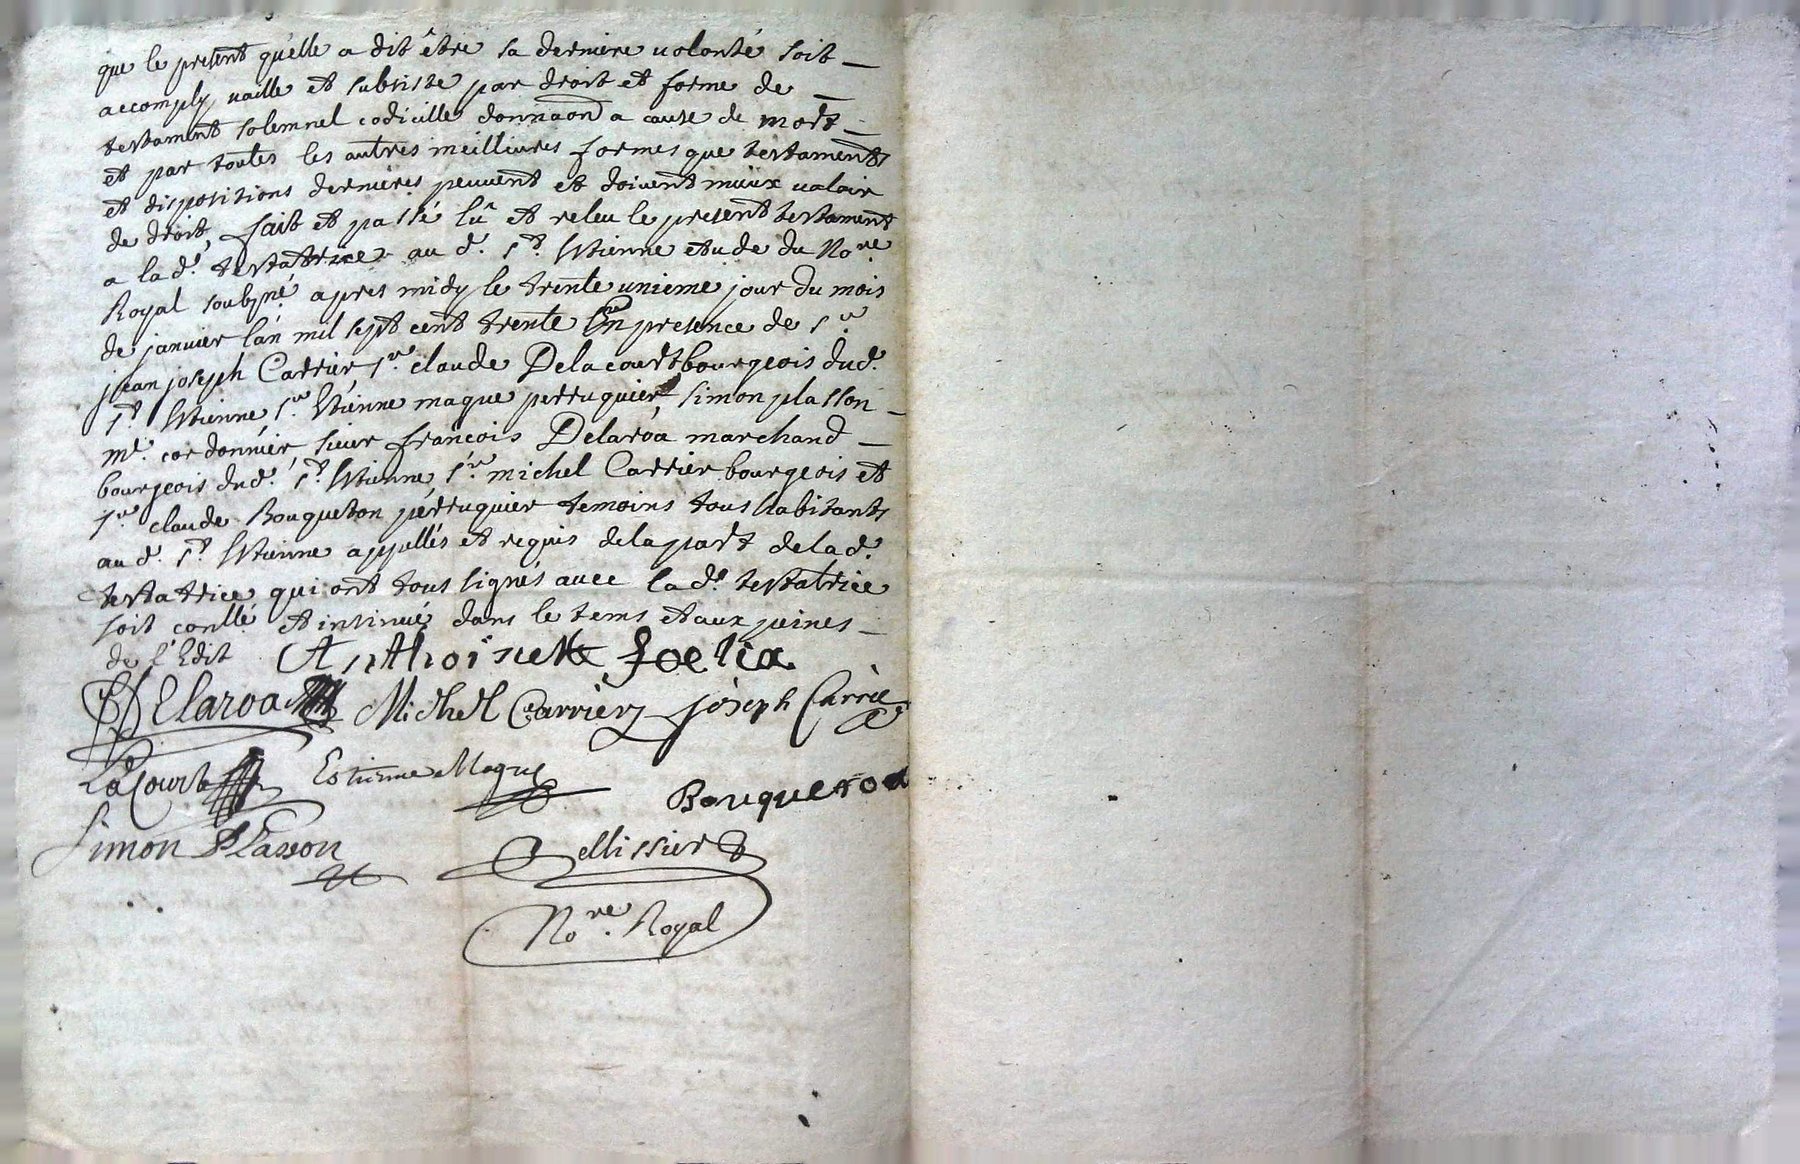 que le present qu'elle a dit être sa derniere volonté soit
accomply vaille et subsiste par droit et forme de
testament solemnel codicille donnaon a cause de mort
et par toutes les autres meillieures formes que testaments
et dispositions dernieres peuvent et doivent mieux valoir
de droit, fait et passé lû et releu le present testament
a la de. testatrice au d. St. Estienne etude du Nore.
Royal soubzné apres midy le trente unieme jour du mois
de janvier l'an mil sept cent trente en presence de Sr.
jean joseph Carrier Sr. claude Delacourt bourgeois dud.
St. Estienne Sr. Etienne maque perruquier Simon plasson
me. cordonnier, sieur françois Delaroa marchand
bourgeois dud. St. Estienne, Sr. michel Carrier bourgeois et
Sr. claude Bouqueton perruquier temoins tous habitants
au d. St. Estienne appellés et requis de la part de la d.
testatrice qui ont tous signés avec la de. testatrice
soit conllé et insinué dans le tems et aux peines
de l'Edit Anthoinette foelix
Delaroa Michel Carrier joseph Carrie
LaCourt Estienne Maque Bouqueton
Simon Plasson Pellissier
Nore. Royal